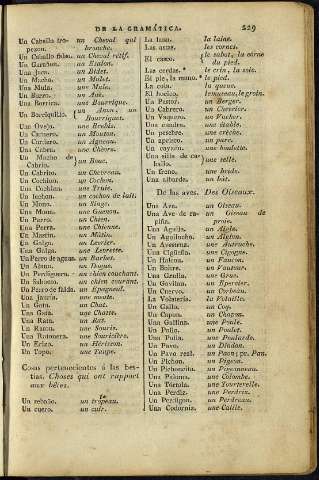 DE LA GRAMÁTICA. 229
Un Caballo tro- un Cheval qui
pezon. bronche.
Un Caballo falso. un Cheval rétif.
Un Garañon. un Etalon.
Una Jaca. un Bidet.
Un Macho. un Mulet.
Una Mula. une Mule.
Un Burro. un Ane.
Una Borrica. une Bourrique.
Un Borriquillo. un Anon, un
Bourriquet.
Un Oveja. une Brebis.
Un Carnero. un Mouton.
Un Cordero. un Agneau.
Una Cabra. une Chèvre.
Un Macho de
Cabrio. un Bouc.
Un Cabrito. un Chevreau.
Un Cochino. un Cochon.
Una Cochina. une Truie.
Un lechon. un cochon de lait.
Un Mono. un Singe.
Una Mona. une Guenon.
Un Perro. un Chien.
Una Perra. une Chienne.
Un Mastin. un Mâtin.
Un Galgo. un Levrier.
Una Galga. une Levrette.
Un Perro de aguas. un Barbet.
Un Alano. un Dogue.
Un Perdiguero. un chien couchant.
Un Sabueso. un chien courant.
Un Perro de falda. un Epagneul.
Una jauría. une meute.
Un Gato. un Chat.
Una Gata. une Chatte.
Una Rata. un Rat.
Un Raton. une Souris.
Una Ratonera. une Souricière.
Un Erizo. un Hérisson.
Un Topo. une Taupe.
Cosas pertenecientes á las bes-
tias. Choses qui ont rapport
aux bêtes.
Un rebaño. un troupeau.
Un cuero. un cuir.
La lana. la laine.
Las astas. les cornes.
El casco. le sabot, la corne
du pied.
Las cerdas. le crin, la soie.
El pie, la mano. le pied.
La cola. la queue.
El hocico. le museau, le groin.
Un Pastor. un Berger.
Un Cabrero. un Chevrier.
Un Vaquero. un Vacher.
Una cuadra. une étable.
Un pesebre. une crèche.
Un aprisco. un parc.
Un cayado. une houlette.
Una silla de ca-
ballo. une selle.
Un freno. une bride.
Una albarda. un bât.
De las aves. Des Oiseaux.
Una Ave. un Oiseau.
Una Ave de ra-
piña. un Oiseau de
proie.
Una Aguila. un Aigle.
Un Aguilucho. un Aiglon.
Un Avestruz. une Autruche.
Una Cigüeña. une Cigogne.
Un Halcon. un Faucon.
Un Buitre. un Vautour.
Una Grulla. une Grue.
Un Gavilan. un Epervier.
Un Cuervo. un Corbeau.
La Volatería. la Volaille.
Un Gallo. un Coq.
Un Capon. un Chapon.
Una Gallina. une Poule.
Un Pollo. un Poulet.
Una Polla. une Poularde.
Un Pavo. un Dindon.
Un Pavo real. un Paon; pr. Pan.
Un Pichon. un Pigeon.
Un Pichoncito. un Pigeonneau.
Una Paloma. une Colombe.
Una Tórtola. une Tourterelle.
Una Perdiz. une Perdrix.
Un Perdigon. un Perdreau.
Una Codorniz. une Caille.